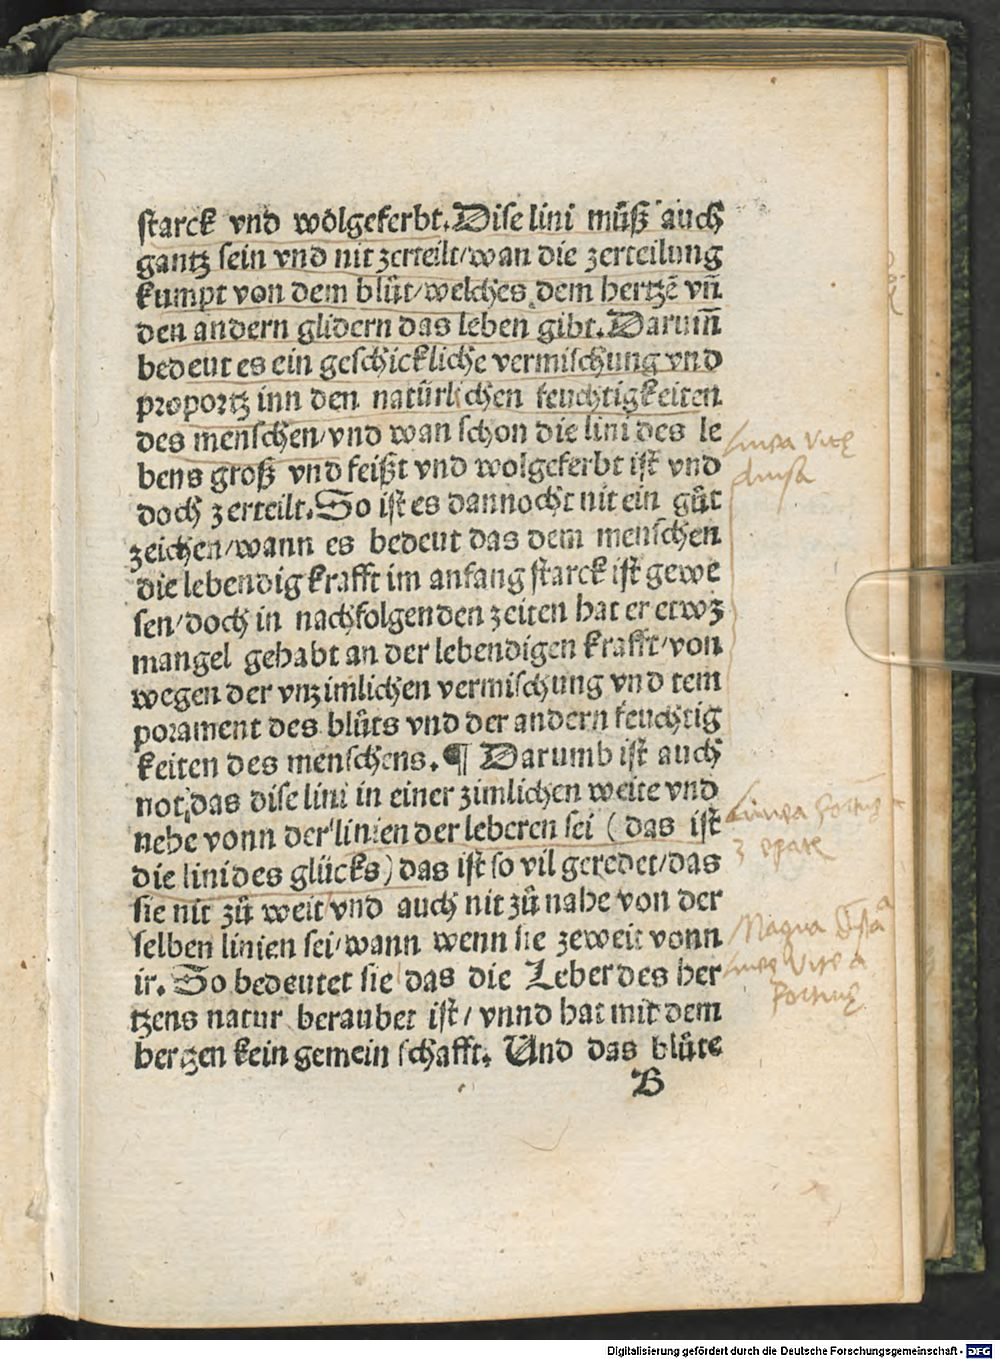 starck vnd wolgeferbt. Dise lini můß auch
gantz sein vnd nit zerteilt/wan die zerteilung
kumpt von dem blůt/welches dem hertzē vñ
den andern glidern das leben gibt. Darum̄
bedeut es ein geschickliche vermischung vnd
proportz inn den natürlichen feuchtigkeiten
des menschen/vnd wan schon die lini des le
bens groß vnd feißt vnd wolgeferbt ist vnd
doch zerteilt. So ist es dannocht nit ein gůt
zeichen/wann es bedeut das dem menschen
die lebendig krafft im anfang starck ist gewe
sen/doch in nachfolgenden zeiten hat er etwz
mangel gehabt an der lebendigen krafft/von
wegen der vnzimlichen vermischung vnd tem
porament des blůts vnd der andern feuchtig
keiten des menschens. ¶ Darumb ist auch
not das dise lini in einer zimlichen weite vnd
nehe vonn der linien der leberen sei (das ist
die lini des glücks) das ist so vil geredet/das
sie nit zů weit vnd auch nit zů nahe von der
selben linien sei/wann wenn sie zeweit vonn
ir. So bedeutet sie das die Leber des her
tzens natur beraubet ist/ vnnd hat mit dem
hertzen kein gemein schafft. Und das blůte
B
Linea vitę
diuisa
Linea
Magna
Digitalisierung gefördert durch die Deutsche Forschungsgemeinschaft - DFG